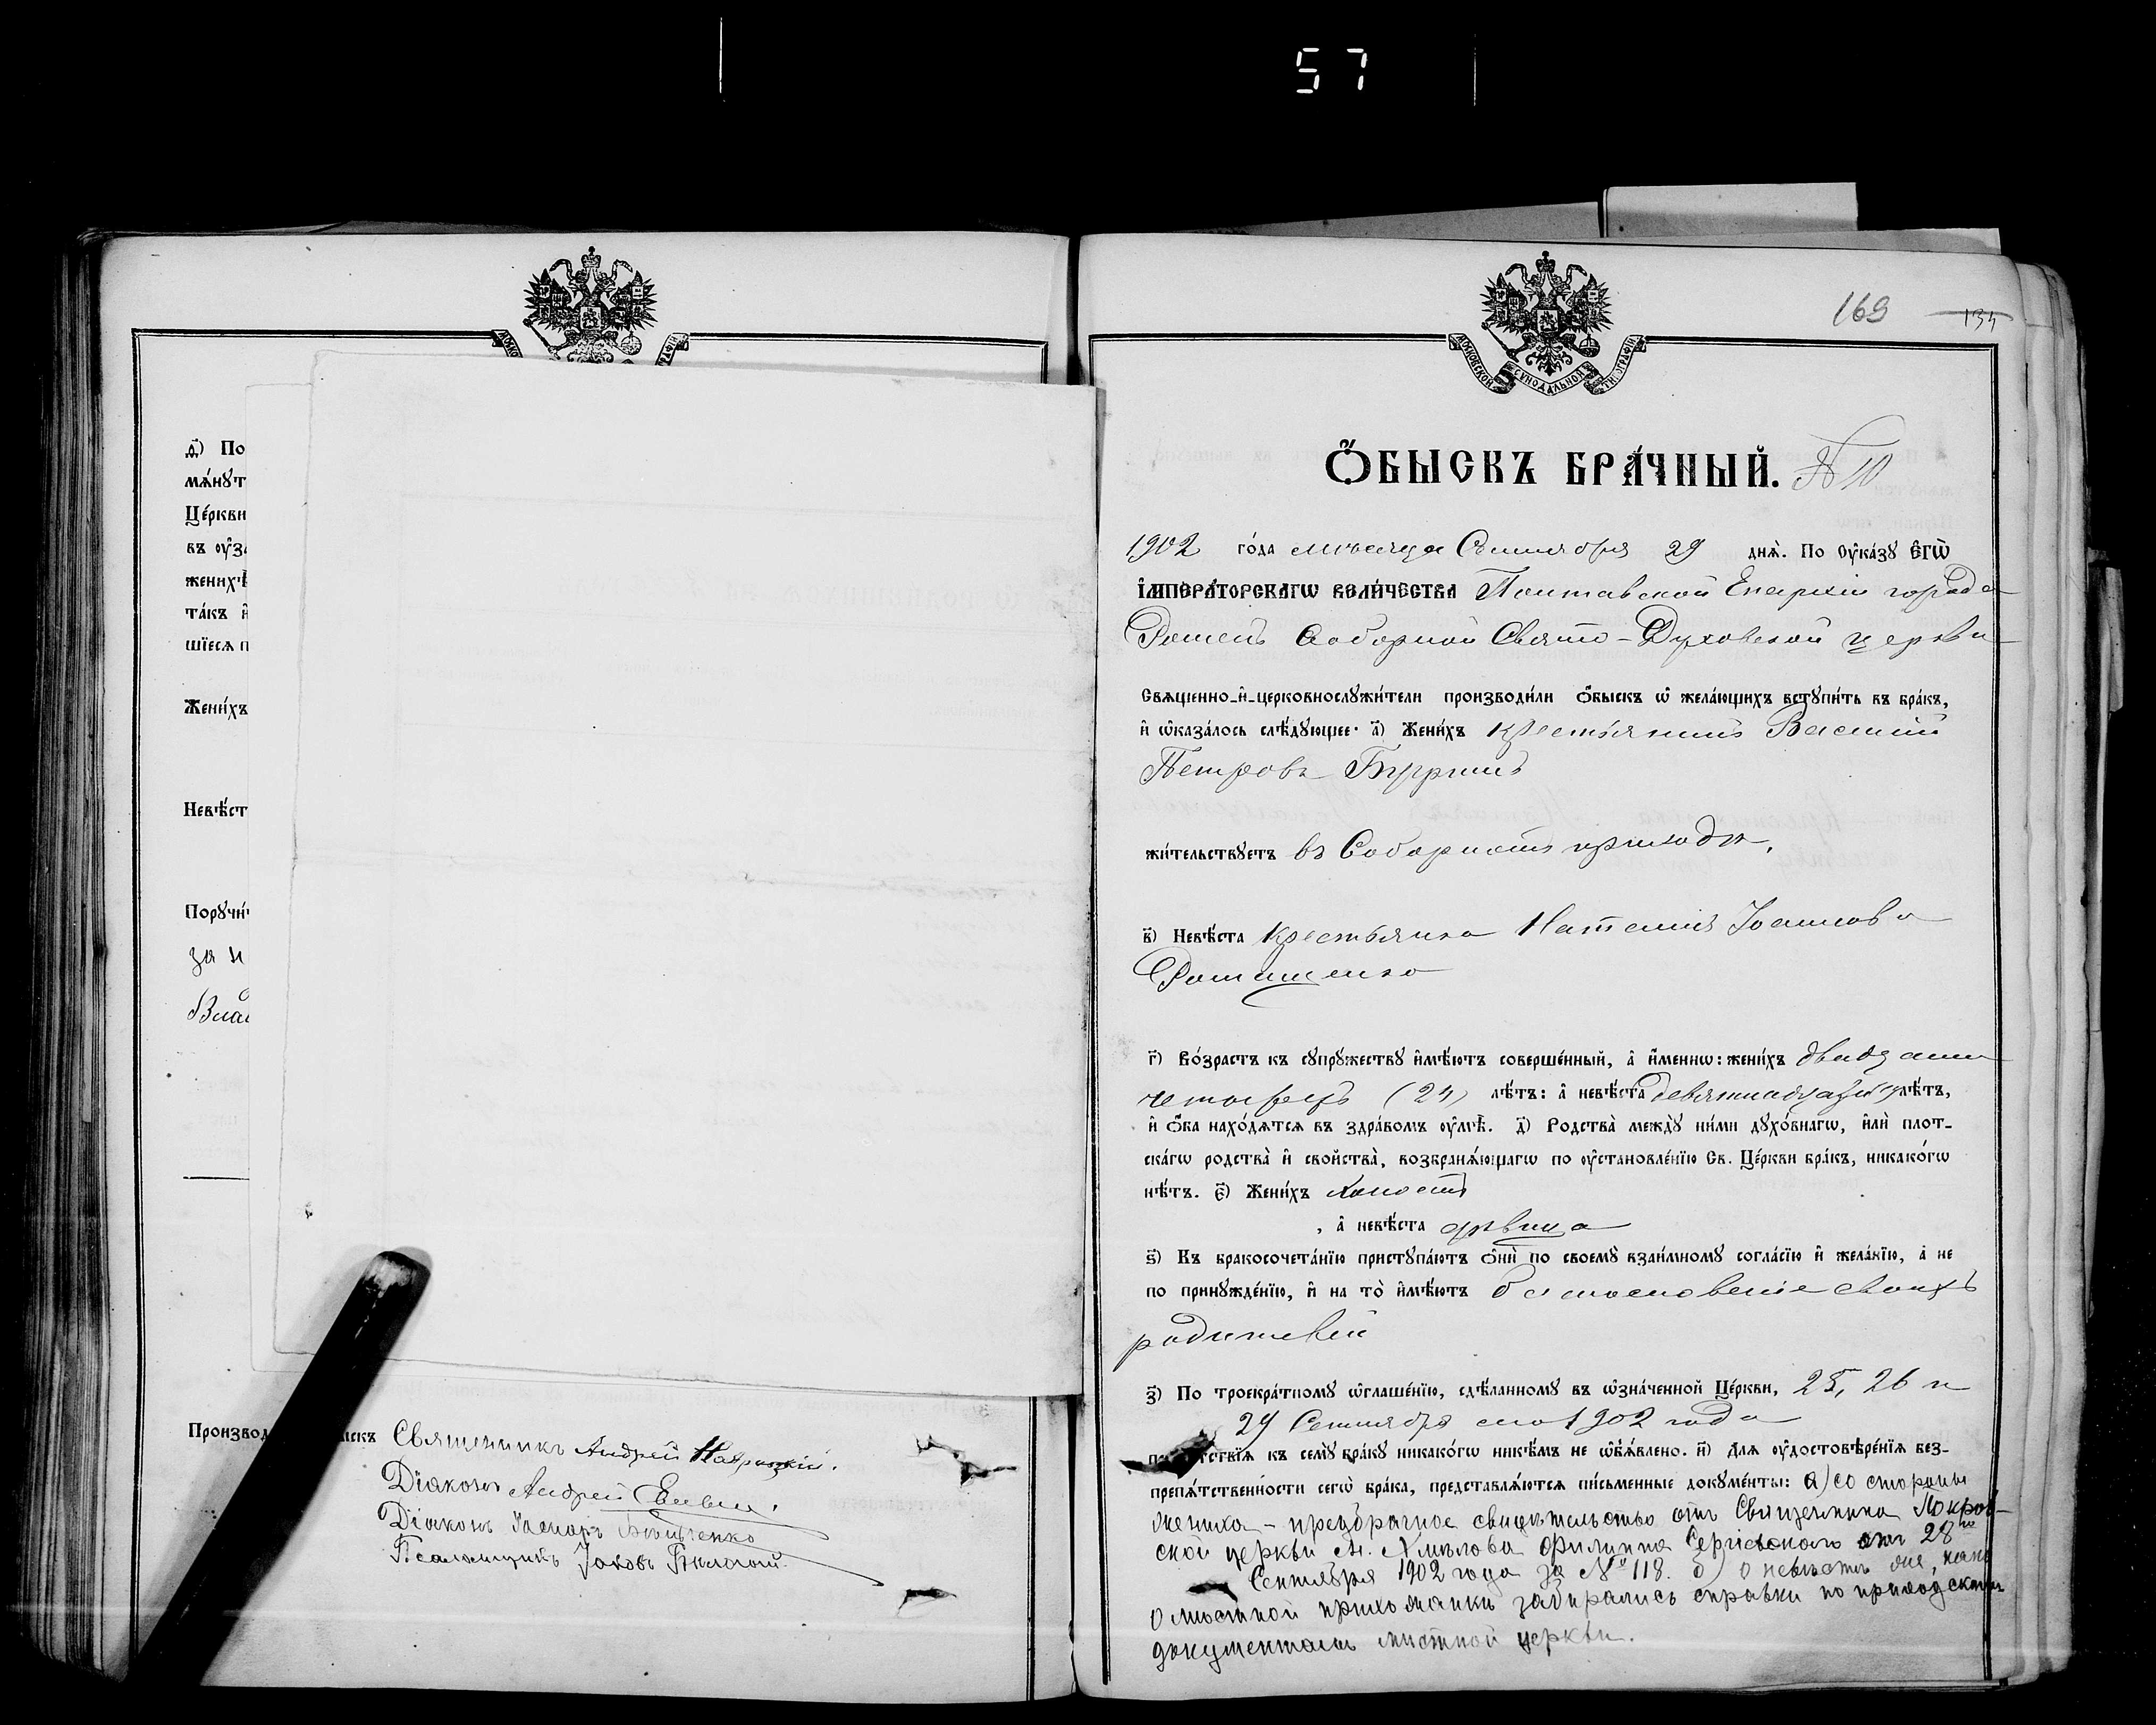 57
МОСКОВ
д҃) По
мѧ́нꙋт
Це́ркви
въ оу҆з
женихъ
та́къ и҆
шїесѧ п
Жени́хъ
Невѣ́ст
Порꙋчи́
за н
Влад
Производ
ыскъ Священникъ Андрей
Діаконъ Андрей
Діаконъ
Псаломщикъ Іаковъ
169
134
МОСКОВСКОЙ СѴНОДАЛЬНОЙ ТИПОГРАФІИ
Ѻ҆́БЫСКЪ БРА́ЧНЫЙ. № 10
1902 го́да мѣсяца Сентября 29 днѧ̀. По оу҆ка́зꙋ Є҆ГѠ̀
І҆МПЕРА́ТОРСКАГѠ ВЕЛИ́ЧЕСТВА Полтавской Епархіи города
Роменъ Соборной Свято-Духовской церкви
Свѧщенно-и҆-церковнослꙋжи́тели производи́ли ѻ҆́быскъ ѡ҆ жела́ющихъ встꙋпи́ть въ бра́къ,
и҆ ѡ҆каза́лось слѣ́дꙋющее: а҃) Жени́хъ крестьянинъ Василій
Петровъ Бурримъ
жи́тельствꙋетъ въ Соборномъ приходѣ,
в҃) Невѣ́ста крестьянка Наталія Іоаннова
Ромащенко
г҃) Во́зрастъ къ сꙋпрꙋжествꙋ и҆мѣ́ютъ соверше́нный, а҆ и҆́меннѡ: жени́хъ двадцати
четырехъ (24) лѣ́тъ: а҆ невѣ́ста девятнадцати лѣ́тъ,
и҆ ѻ҆́ба нахо́дѧтсѧ въ здра́вомъ оу҆мѣ̀. д҃) Родства̀ междꙋ̀ ни́ми дꙋхо́внагѡ, и҆лѝ плот-
ска́гѡ родства̀ и҆ свойства̀, возбранѧ́ющагѡ по оу҆становле́нїю Св. Це́ркви бра́къ, никако́гѡ
нѣ́тъ. є҃) Жени́хъ холостъ
, а҆ невѣ́ста дѣвица
ѕ҃) Къ бракосочета́нїю пристꙋпа́ютъ ѻ҆нѝ по своемꙋ̀ взаи́мномꙋ согла́сїю и҆ жела́нїю, а҆ не
по принꙋжде́нїю, и҆ на то̀ и҆мѣ́ютъ благословеніе своихъ
родителей
з҃) По троекра́тномꙋ ѡ҆глаше́нїю, сдѣ́ланномꙋ въ ѡ҆зна́ченной Це́ркви, 25, 26 и
29 Сентября сего 1902 года
п тствїѧ къ семꙋ̀ бра́кꙋ никако́гѡ никѣ́мъ не ѡ҆б̾ѧ́влено. и҃) Для оу҆достовѣре́нїѧ без-
препѧ́тственности сегѡ̀ бра́ка, представлѧ́ютсѧ пи́сьменные докꙋме́нты: а) со стороны
жениха - предбрачное свидѣтельство отъ Священника Покров-
ской церкви м. Хмѣлова Филиппа Сергіевскаго отъ 28го
Сентября 1902 года за № 118. б) о невѣстѣ же, какъ
о мѣстной прихожанки забирались справки по приходскимъ
документамъ мѣстной церкви.